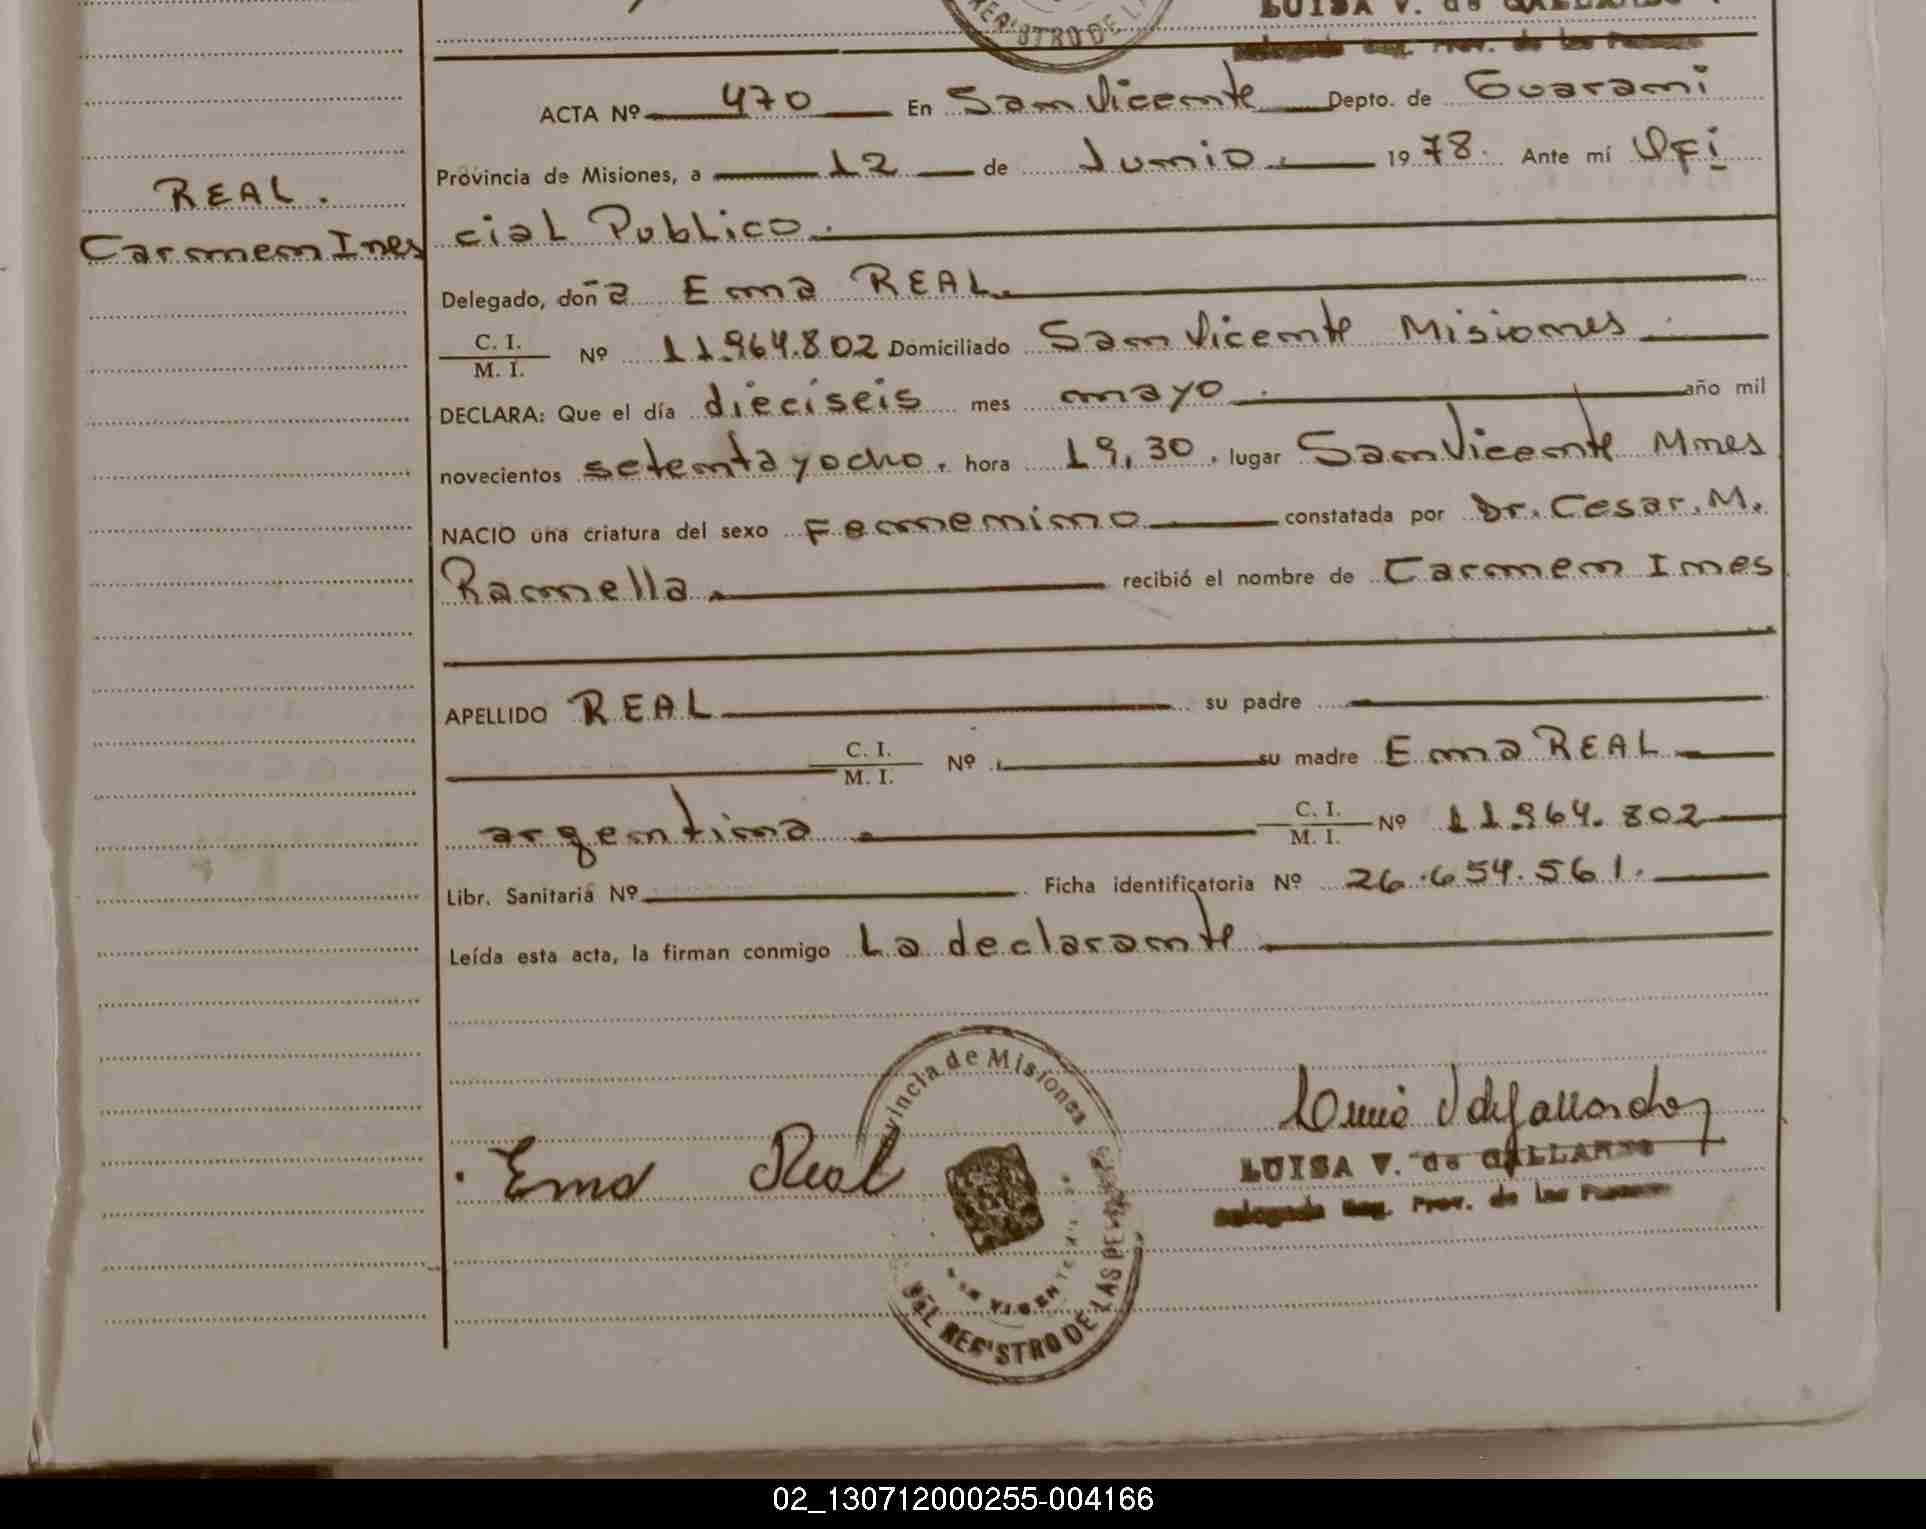 LUISA V. de GALLARDO
Delegada Reg. Prov. de las Personas
REGISTRO DE LA
ACTA Nº 470 En San Vicente Depto. de Guarani
Provincia de Misiones, a 12 de Junio 1978. Ante mí Ofi
REAL.
Carmen Ines
cial Publico.
Delegado, doña Ema REAL.
C. I.
M. I.
Nº 11.964.802 Domiciliado San Vicente Misiones
DECLARA: Que el día dieciseis mes mayo año mil
novecientos setenta y ocho, hora 19,30, lugar San Vicente Mnes
NACIO una criatura del sexo Femenino constatada por Dr. Cesar. M.
Ramella. recibió el nombre de Carmen Ines
APELLIDO REAL su padre
C. I.
M. I.
Nº su madre Ema REAL
argentina
C. I.
M. I.
Nº 11.964.802
Libr. Sanitaria Nº Ficha identificatoria Nº 26.654.561.
Leída esta acta, la firman conmigo La declarante
Ema Real
Provincia de Misiones
SAN VICENTE
DEL REGISTRO DE LAS PERSONAS
LUISA V. de GALLARDO
Delegada Reg. Prov. de las Personas
02_130712000255-004166